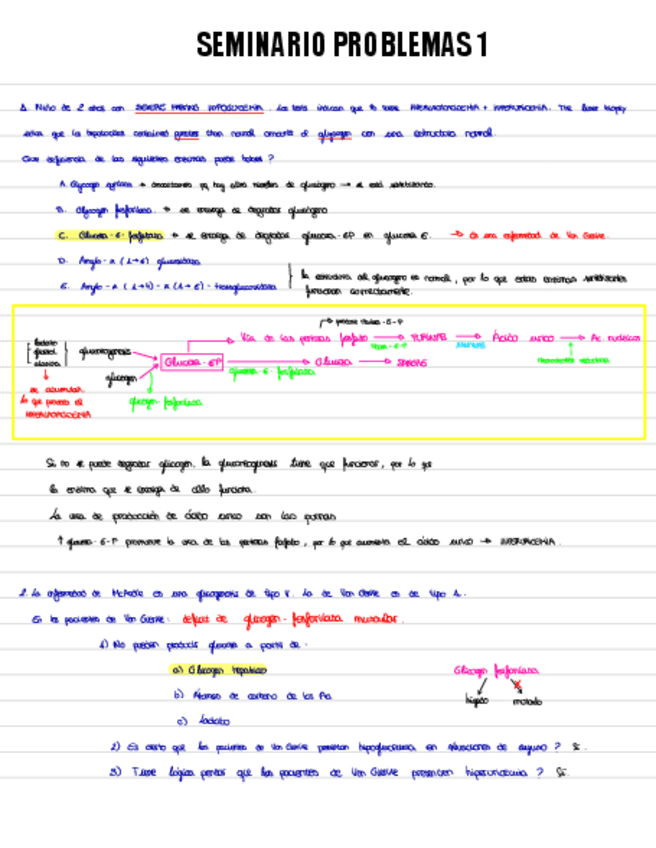 SEMINARIO PROBLEMAS 1
1. Niño de 2 años con SEVERE FASTING HYPOGLYCEMIA. Los tests indican que tiene + HIPERURICEMIA. The liver biopsy
que los hepatocitos contained greater than normal amounts of glycogen con una estructura normal.
Qué deficiencia de las siguientes enzimas puede haber?
A. Glycogen → ya hay altos niveles de glucógeno → sí está sintetizando.
B. Glycogen fosforilasa. → se encarga de degradar glucógeno
C. Glucosa-6-fosfatasa → se encarga de degradar glucosa-6P en glucosa 6. → Es una enfermedad de Von Gierke.
D. Amylo-α (1→6) glucosidasa
E. Amylo-α (1→4)-α (1→6)-transglucosidasa
la estructura del glucógeno es normal, por lo que estas enzimas
funcionan correctamente.
Vía de las pentosas fosfato → → Ácido úrico → Ac. nucleicos
lactato
glicerol
alanina
gluconeogénesis
Glucosa-6P → Glucosa → SANGRE
glucosa-6-fosfatasa
glucógeno
se acumulan
lo que provoca el
glucógeno fosforilasa
Si no se puede degradar glucógeno, la gluconeogénesis tiene que funcionar, por lo que
la enzima que se encarga de ello funciona.
La vía de producción de ácido úrico son las purinas
↑ glucosa-6-P promueve la vía de las pentosas fosfato, por lo que aumenta el ácido úrico → HIPERURICEMIA.
2. La enfermedad de McArdle es una glucogenosis de tipo V. La de Von Gierke es de tipo 1.
En los pacientes de Von Gierke: déficit de glucógeno-fosforilasa muscular.
1) No pueden producir glucosa a partir de:
a) Glucógeno hepático
b) Átomos de carbono de los Aa
c) Lactato
Glucógeno fosforilasa
hígado músculo
2) Es cierto que los pacientes de Von Gierke presentan hipoglucemia en situaciones de ayuno? Sí.
3) Tiene lógica pensar que los pacientes de Von Gierke presenten hiperuricemia? Sí.